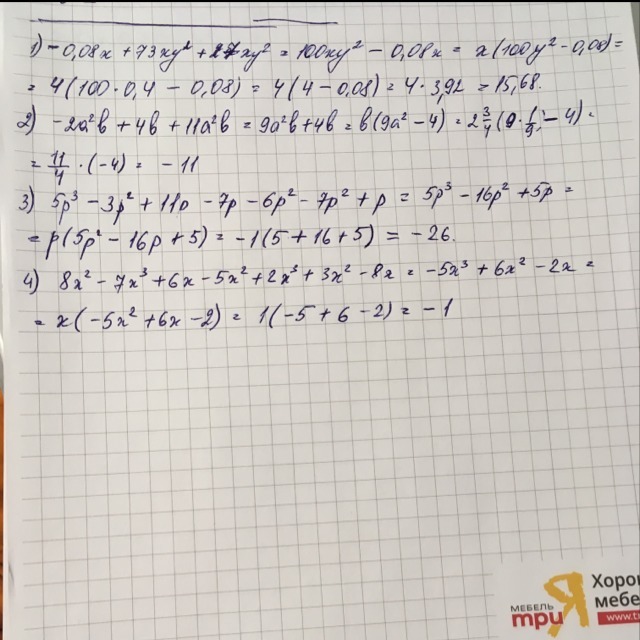 1) -0,08x + 73xy² + 27xy² = 100xy² - 0,08x = x(100y² - 0,08) =
= 4(100·0,4 - 0,08) = 4(4 - 0,08) = 4·3,92 = 15,68.
2) -2a²b + 4b + 11a²b = 9a²b + 4b = b(9a² - 4) = 2 3/4 (9·1/9 - 4) =
= 11/4 · (-4) = -11
3) 5p³ - 3p² + 11p - 7p - 6p² - 7p² + p = 5p³ - 16p² + 5p =
= p(5p² - 16p + 5) = -1(5 + 16 + 5) = -26.
4) 8x² - 7x³ + 6x - 5x² + 2x³ + 3x² - 8x = -5x³ + 6x² - 2x =
= x(-5x² + 6x - 2) = 1(-5 + 6 - 2) = -1
МЕБЕЛЬ
триЯ